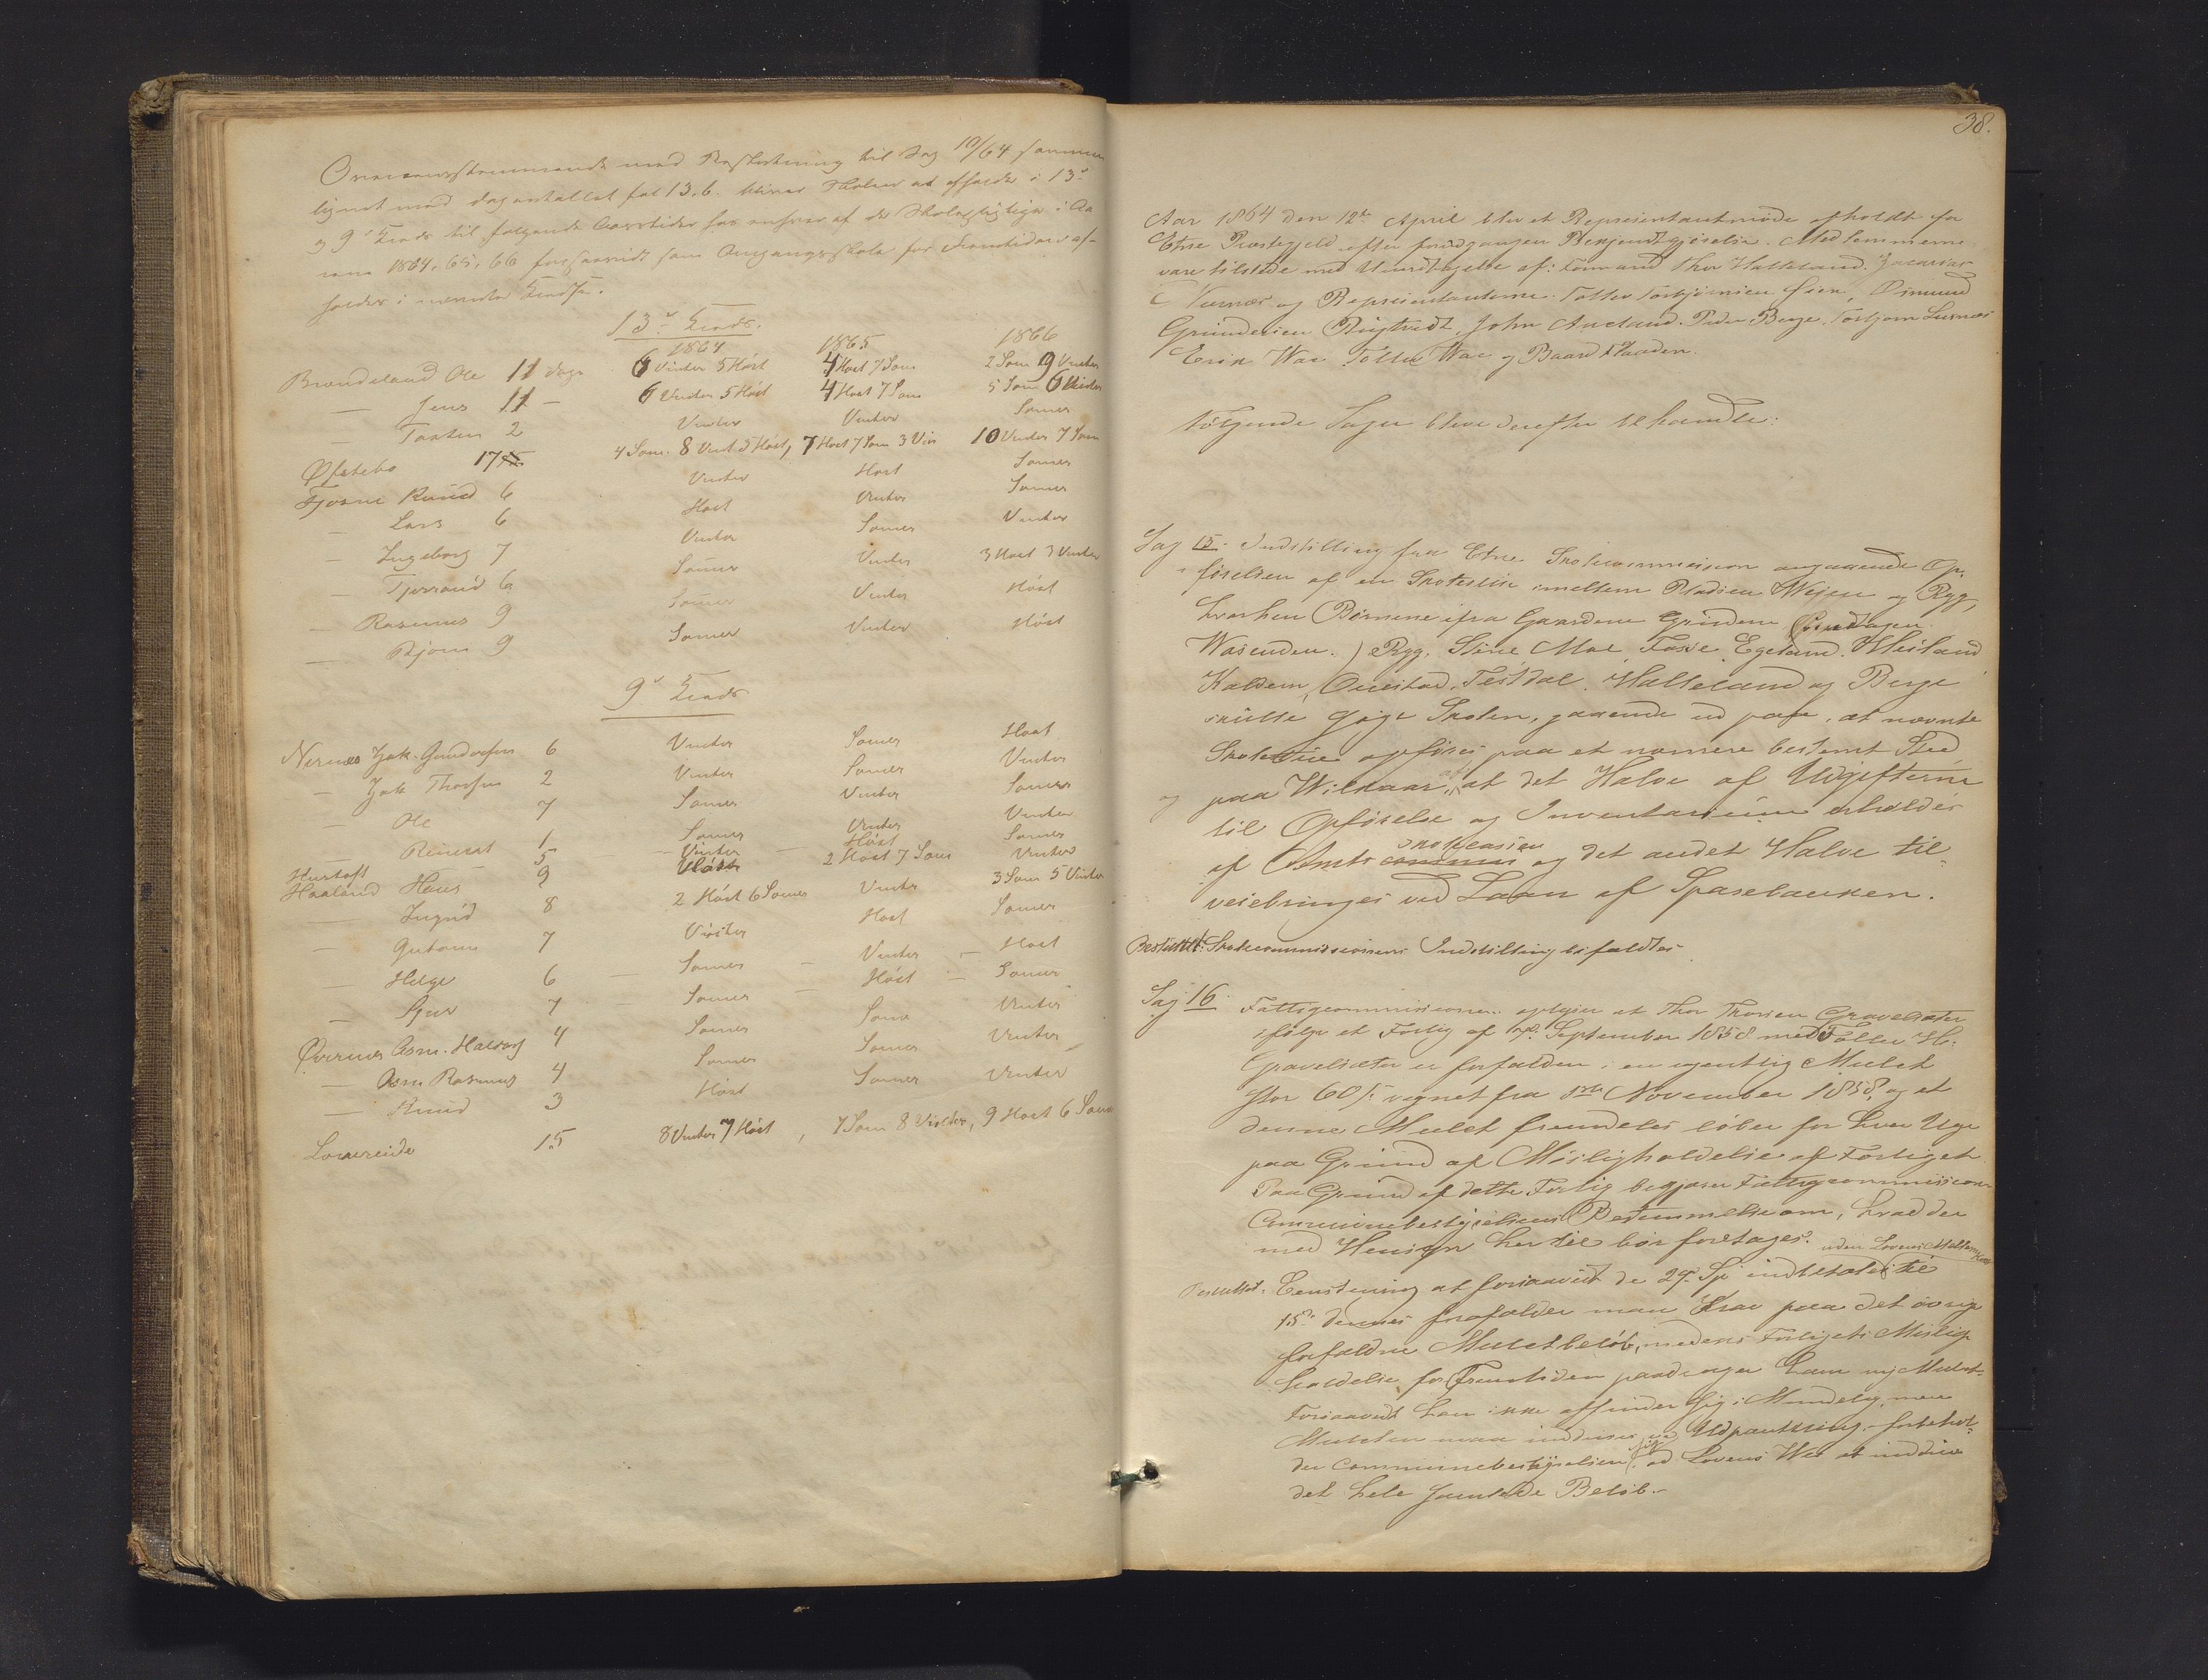 Overensstemmende med Beslutning til Sag 10/64 sammen
lignet med dagantallet fol 13.b. bliver Skolen at afholde i 13de
og 9de Kreds til følgende Aarstider hos enhver af de Skolepligtige i Aa
rene 1864, 65, 66 forsaavidt som Omgangsskole for Fremtiden af-
holdes i nævnte Kredse.
13de Kreds.
1864 1865 1866
Brændeland Ole 11 dage 6 Vinter 5 Høst 4 Høst 7 Som 2 Som 9 Vinter
— Jens 11 — 6 Vinter 5 Høst 4 Høst 7 Som 5 Som 6 Vinter
— Torsten 2 Vinter Vinter Somer
Østebø 17 4 Som. 8 Vint 5 Høst, 7 Høst 7 Som 3 Vin 10 Vinter 7 Som
Fjøsne Knud 6 Vinter Høst Somer
— Lars 6 Høst Vinter Somer
— Ingeborg 7 Vinter Somer Vinter
— 6 Somer Vinter 3 Høst 3 Vinter
— Rasmus 9 Somer Vinter Høst
— Bjørn 9 Somer Vinter Høst
9de Kreds
Nernes Jak. Gundersen 6 Vinter Somer Høst
— Jak Thorsen 2 Vinter Somer Vinter
— Ole 7 Somer Vinter Somer
— Reinert 1 Somer Vinter Vinter
Hustoft 5 — Vinter — Høst Somer
Haaland Hans 9 Høst 2 Høst 7 Som Vinter
— Ingrid 8 2 Høst 6 Somer Vinter 3 Som 5 Vinter
— Guttorm 7 Vinter Høst Somer
— Helge 6 — Somer — Vinter — Høst
— Sjur 7 — Somer — Høst — Somer
Øvernes Asm. Halvors 4 Somer Some Vinter
— Asm Rasmus 4 Somer Somer Vinter
— Knud 3 Høst Somer Vinter
15 8 Vinter 7 Høst, 7 Som 8 Vinter, 9 Høst 6 Som
38.
Aar 1864 den 12te April blev et Repræsentantmøde afholdt for
Etne Præstegjeld efter foregaaende Bekjendtgjørelse. Medlemmerne
vare tilstæde med Undtagelse af: Formand Thor Halleland. Zacarias
Nernæs og Repræsentanterne: Tollev Torbjørnsen Øien, Osmund
Grundesen Rygtvedt, John Aaeland. Peder Berge. Torbjørn
Erik Wae Tollev Wae og Baard Flaaden.
Følgende Sager bleve derefter behandlet:
Sag 15. Indstilling fra Etne Skolecommission angaaende Op-
førelsen af en Skolestue imellem Pladsen Weien og Ryg,
hvorhen Børnene ifra Gaardene Grindem
Wasenden.) Ryg. Stine Moe Fosse Egeland. Meiland
Kaldem, Ouestad. Teitdal. Halleland og Berge
skulle søge Skolen, gaaende ud paa, at nævnte
Skolestue opføres paa et nærmere bestemt Sted
og paa Wilkaar, at det Halve af Udgifterne
til Opførelse og Inventarium erholdes
af Amtsskolecassien og det andet Halve til-
veiebringes ved Laan af Sparebanken.
Besluttet: Skolecommissionens Indstilling bifaldtes.
Sag 16. Fattigcommissionen oplyser at Thor Thorsen Gravelsæter
ifølge et Forlig af September 1858 med Tollev H.
Gravelsæter er forfalden i en ugentlig Mulct
stor 60 ß regnet fra 1ste November 1858, og at
denne Mulct fremdeles løber for hver Uge
paa Grund af Misligholdelse af Forliget.
Paa Grund af dette Forlig begjærer Fattigcommissionen
Communebestyrelsens Bestemmelse om, hvad der
med Hensyn hertil bør foretages.
uden Lovens Mellemkomst
Besluttet. Eenstemmig at forsaavidt de 29 Sp indbetales til
15de dennes frafalder man Krav paa det øvrige
forfaldne Mulctbeløb, medens Forligets Mislig-
holdelse for Fremtiden paadrager ham ny Mulct.
Forsaavidt han ikke affinder sig i Mindelighed, men
Mulcten maa inddrives ved Udpantning, forbehol-
der Communebestyrelsen sig ad Lovens Vei at inddrive
det hele samlede Beløb.